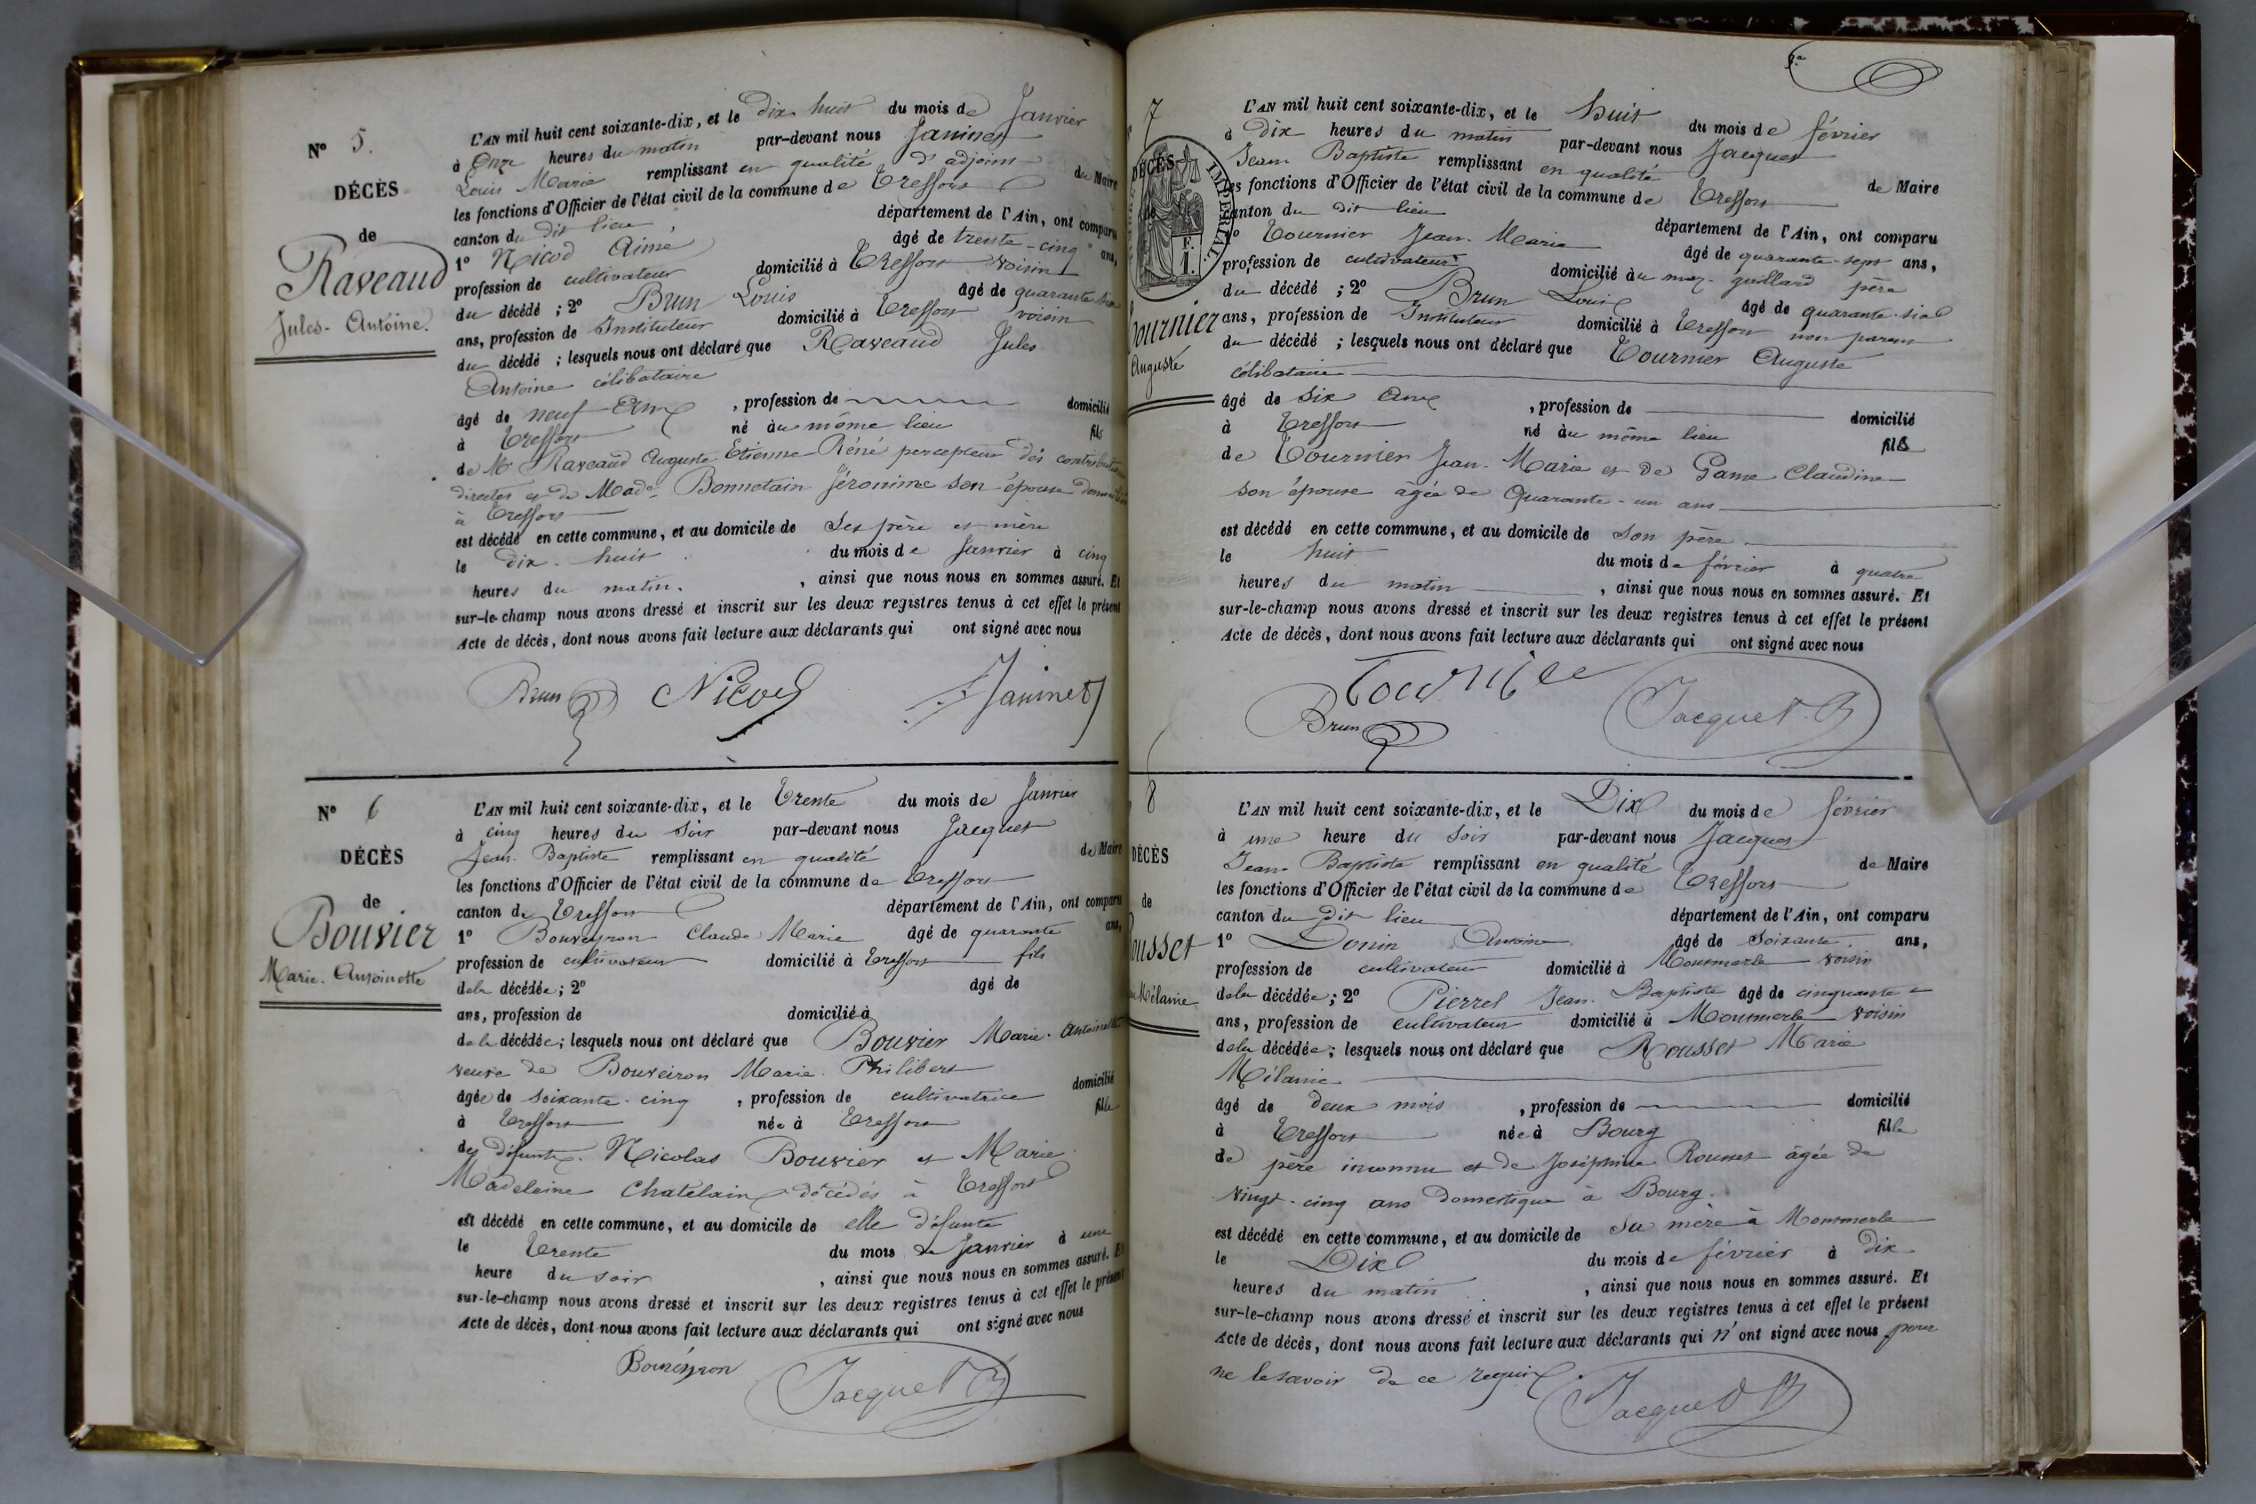 N° 5.
DÉCÈS
de
Raveaud
Jules-Antoine.
L'AN mil huit cent soixante-dix, et le dix huit du mois de Janvier
à Onze heures du matin par-devant nous Janinet
Louis Marie remplissant en qualité d'adjoint du Maire
les fonctions d'Officier de l'état civil de la commune de Treffort
canton du dit lieu département de l'Ain, ont comparu
1° Nicod Aimé âgé de trente-cinq ans,
profession de cultivateur domicilié à Treffort voisin
du décédé ; 2° Brun Louis âgé de quarante six
ans, profession de Instituteur domicilié à Treffort voisin
du décédé ; lesquels nous ont déclaré que Raveaud Jules
Antoine célibataire
âgé de neuf ans , profession de domicilié
à Treffort né au même lieu fils
de Mr Raveaud Auguste Etienne Réné percepteur des contributions
directes et de Made Bonnetain Jéronime son épouse
à Treffort
est décédé en cette commune, et au domicile de Ses père et mère
le dix-huit du mois de Janvier à cinq
heures du matin. , ainsi que nous nous en sommes assuré. Et
sur-le-champ nous avons dressé et inscrit sur les deux registres tenus à cet effet le présent
Acte de décès, dont nous avons fait lecture aux déclarants qui ont signé avec nous
Brun Nicod Janinet
N° 6
DÉCÈS
de
Bouvier
Marie-Antoinette
L'AN mil huit cent soixante-dix, et le Trente du mois de Janvier
à cinq heures du soir par-devant nous Jacquet
Jean-Baptiste remplissant en qualité de Maire
les fonctions d'Officier de l'état civil de la commune de Treffort
canton de Treffort département de l'Ain, ont comparu
1° Bouveyron Claude Marie âgé de quarante ans,
profession de cultivateur domicilié à Treffort fils
de la décédée ; 2° âgé de
ans, profession de domicilié à
de la décédée ; lesquels nous ont déclaré que Bouvier Marie-Antoinette
veuve de Bouveiron Marie Philibert
âgée de soixante-cinq , profession de cultivatrice domicilié
à Treffort née à Treffort fille
des défunts Nicolas Bouvier et Marie
Madeleine Chatelain décédés à Treffort
est décédé en cette commune, et au domicile de elle défunte
le Trente du mois de Janvier à une
heure du soir , ainsi que nous nous en sommes assuré. Et
sur-le-champ nous avons dressé et inscrit sur les deux registres tenus à cet effet le présent
Acte de décès, dont nous avons fait lecture aux déclarants qui ont signé avec nous
Bouveyron Jacquet
7
DÉCÈS
de
IMPERIAL
Tournier
Auguste
L'AN mil huit cent soixante-dix, et le huit du mois de février
à dix heures du matin par-devant nous Jacquet
Jean Baptiste remplissant en qualité de Maire
les fonctions d'Officier de l'état civil de la commune de Treffort
canton du dit lieu département de l'Ain, ont comparu
1° Tournier Jean-Marie âgé de quarante-sept ans,
profession de cultivateur domicilié au père
du décédé ; 2° Brun Louis âgé de quarante-six
ans, profession de Instituteur domicilié à Treffort non parent
du décédé ; lesquels nous ont déclaré que Tournier Auguste
célibataire
âgé de six ans , profession de domicilié
à Treffort né au même lieu fils
de Tournier Jean-Marie et de Game Claudine
son épouse âgée de Quarante-un ans
est décédé en cette commune, et au domicile de son père
le huit du mois de février à quatre
heures du matin , ainsi que nous nous en sommes assuré. Et
sur-le-champ nous avons dressé et inscrit sur les deux registres tenus à cet effet le présent
Acte de décès, dont nous avons fait lecture aux déclarants qui ont signé avec nous
Tournier
Brun Jacquet
8
DÉCÈS
de
ousset
Mélanie
L'AN mil huit cent soixante-dix, et le Dix du mois de février
à une heure du soir par-devant nous Jacquet
Jean-Baptiste remplissant en qualité de Maire
les fonctions d'Officier de l'état civil de la commune de Treffort
canton du dit lieu département de l'Ain, ont comparu
1° Donin Antoine âgé de soixante ans,
profession de cultivateur domicilié à Montmerle voisin
de la décédée ; 2° Pierrel Jean-Baptiste âgé de cinquante
ans, profession de cultivateur domicilié à Montmerle voisin
de la décédée ; lesquels nous ont déclaré que Rousset Marie
Mélanie
âgé de deux mois , profession de domicilié
à Treffort née à Bourg fille
de père inconnu et de Joséphine Rousset âgée de
vingt-cinq ans domestique à Bourg.
est décédé en cette commune, et au domicile de sa mère à Montmerle
le Dix du mois de février à dix
heures du matin , ainsi que nous nous en sommes assuré. Et
sur-le-champ nous avons dressé et inscrit sur les deux registres tenus à cet effet le présent
Acte de décès, dont nous avons fait lecture aux déclarants qui n'ont signé avec nous pour
ne le savoir de ce requis.
Jacquet